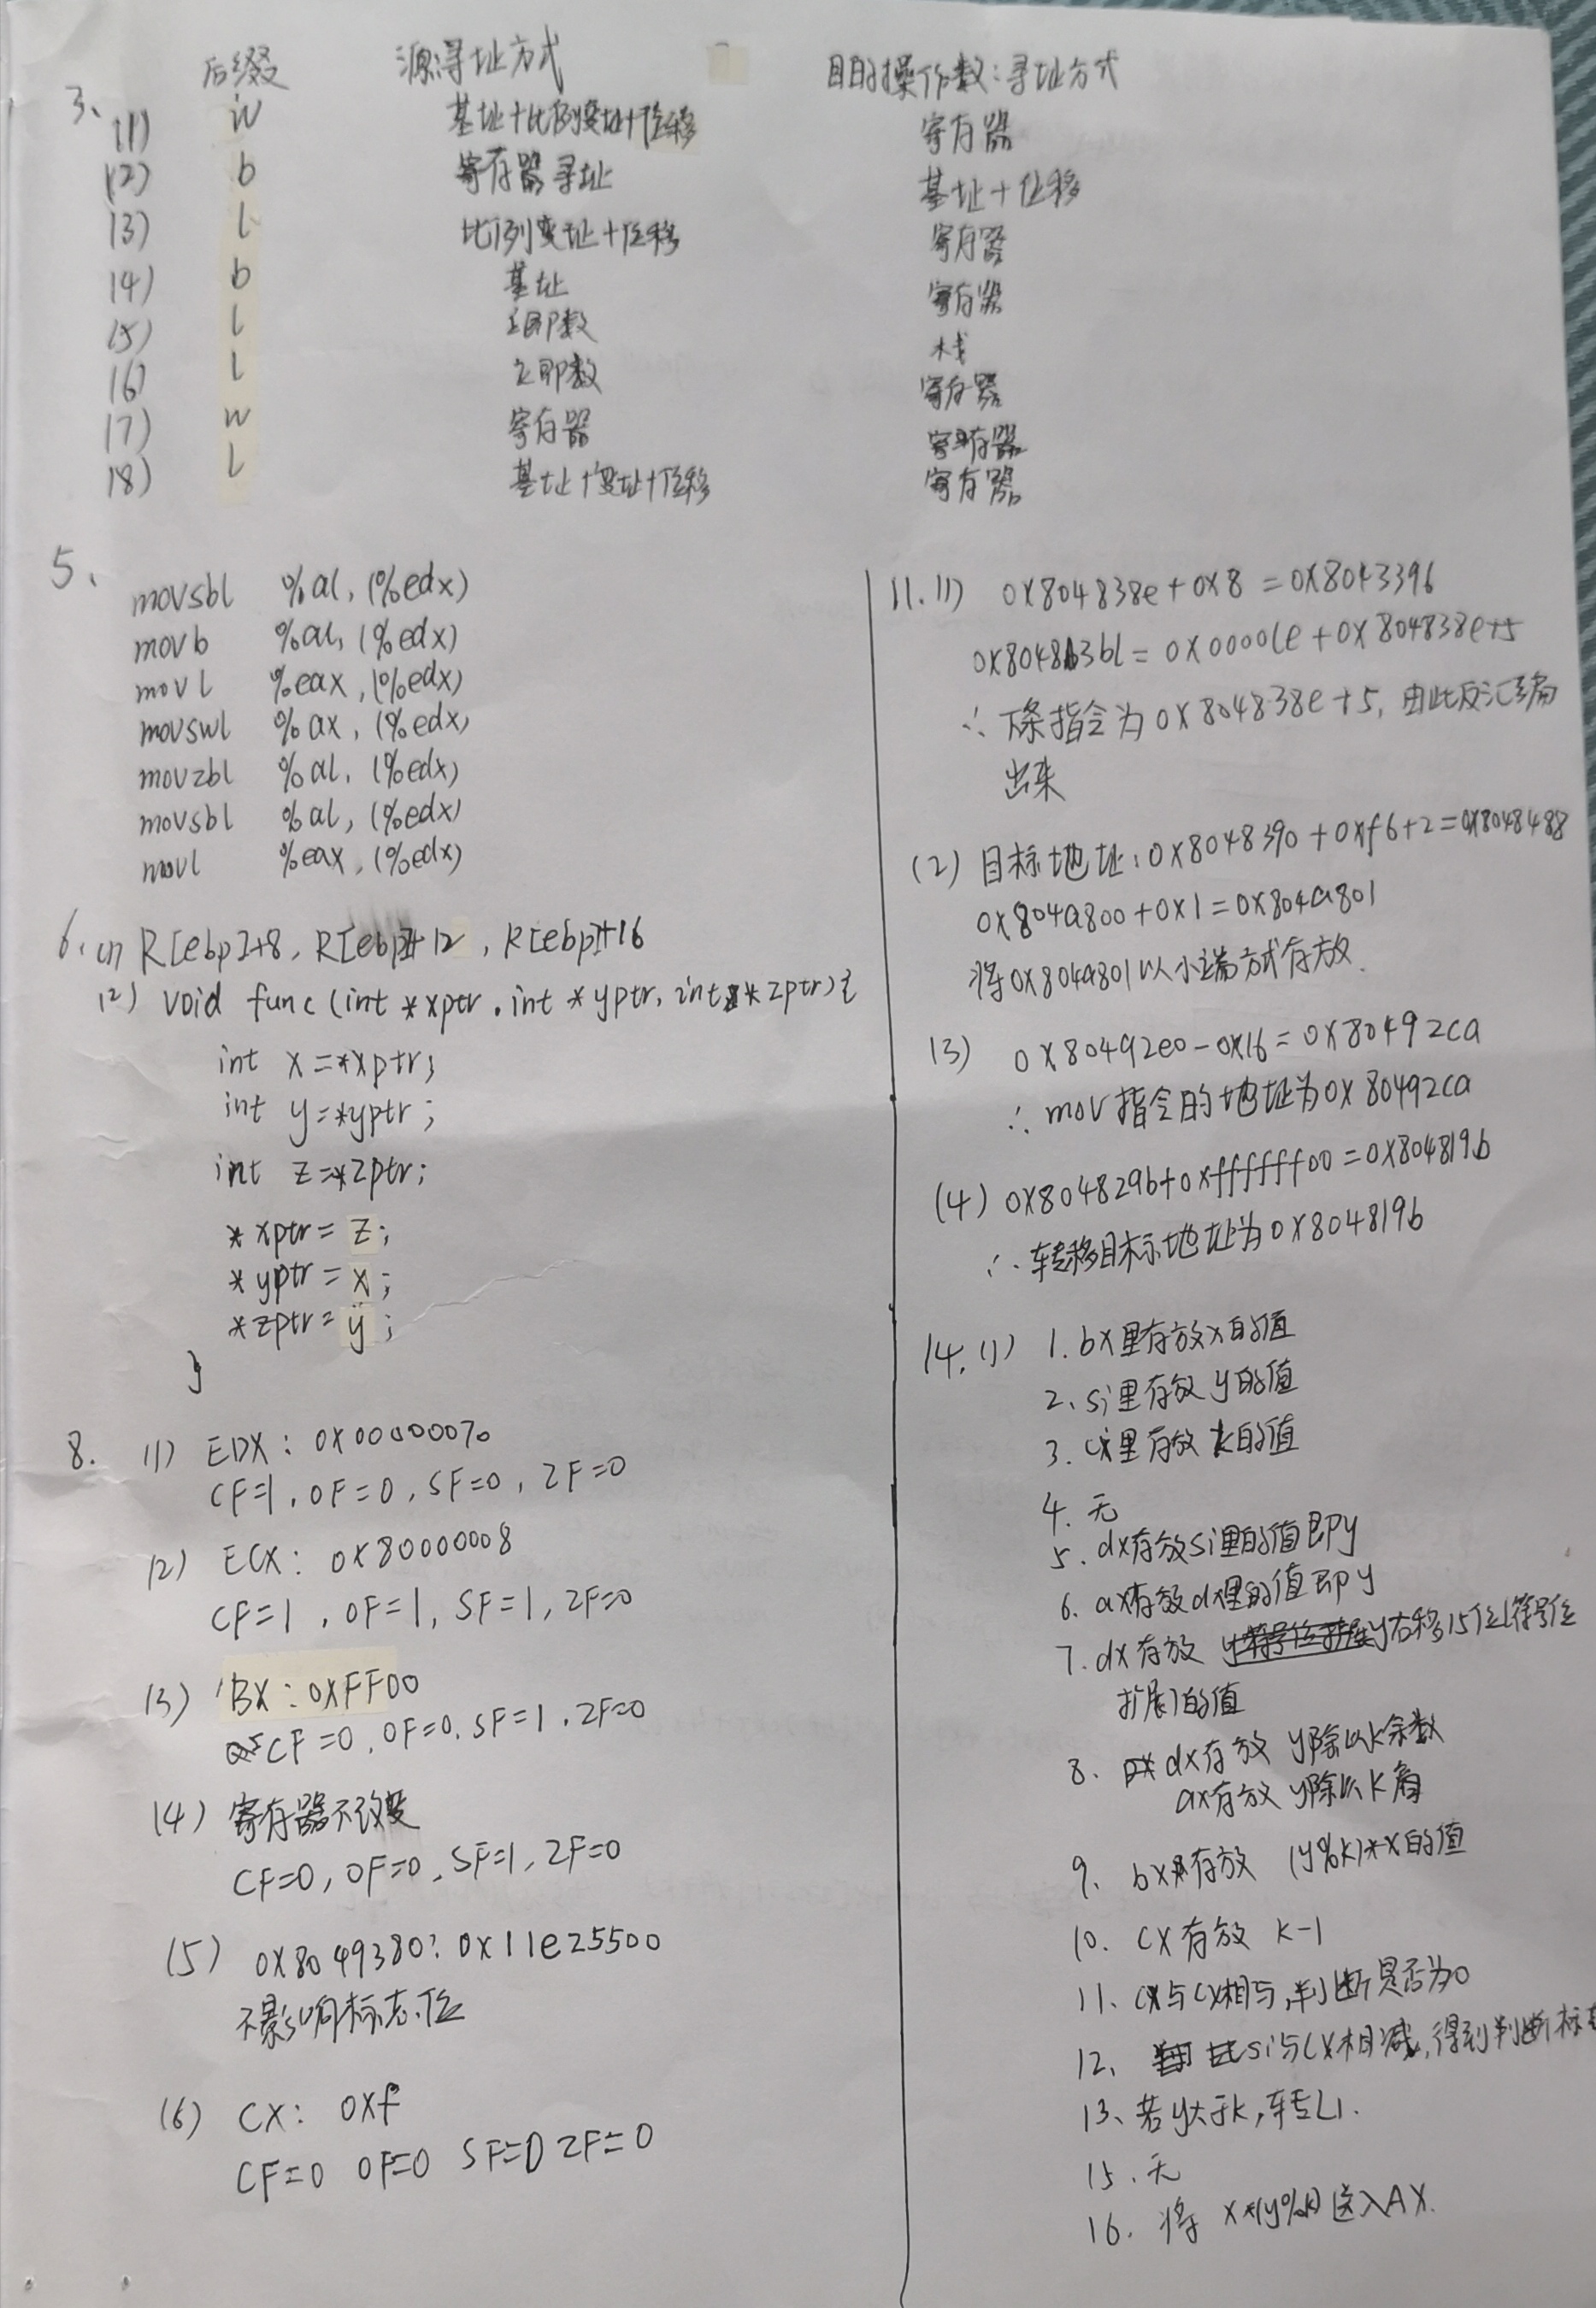 后缀 源寻址方式 目的操作数:寻址方式
3、
(1) w 基址+比例变址+位移 寄存器
(2) b 寄存器寻址 基址+位移
(3) l 比例变址+位移 寄存器
(4) b 基址 寄存器
(5) l 立即数 栈
(6) l 立即数 寄存器
(7) w 寄存器 寄存器
(8) l 基址+变址+位移 寄存器
5、
movsbl %al, (%edx)
movb %al, (%edx)
movl %eax, (%edx)
movswl %ax, (%edx)
movzbl %al, (%edx)
movsbl %al, (%edx)
movl %eax, (%edx)
6. (1) R[ebp]+8, R[ebp]+12, R[ebp]+16
(2) void func (int *xptr, int *yptr, int *zptr){
int x=*xptr;
int y=*yptr;
int z=*zptr;
*xptr=z;
*yptr=x;
*zptr=y;
}
8. (1) EDX: 0x00000070
CF=1, OF=0, SF=0, ZF=0
(2) ECX: 0x80000008
CF=1, OF=1, SF=1, ZF=0
(3) BX: 0XFF00
CF=0, OF=0, SF=1, ZF=0
(4) 寄存器不改变
CF=0, OF=0, SF=1, ZF=0
(5) 0x8049380: 0x11e25500
不影响标志位
(6) CX: 0xf
CF=0 OF=0 SF=0 ZF=0
11. (1) 0x804838e+0x8=0x8043396
=0x00001e+0x804838e+5
∴下条指令为0x804838e+5, 由此反汇编
出来
(2) 目标地址: 0x8048390+0xf6+2=0x8048488
0x804a800+0x1=0x804a801
将0x804a801以小端方式存放.
(3) 0x80492e0-0x16=0x80492ca
∴mov指令的地址为0x80492ca
(4) 0x804829b+0xffffff00=0x804819b
∴转移目标地址为0x804819b
14. (1) 1. bx里存放x的值
2、si里存放y的值
3. cx里存放k的值
4. 无
5. dx存放si里的值即y
6. ax存放dx里的值即y
7. dx存放 y右移15位(符号位
扩展)的值
8. dx存放 y除以k余数
ax存放 y除以k商
9、bx存放 (y%k)*x的值
10. cx存放 k-1
11. cx与cx相与,判断是否为0
12、si与cx相减,得到判断标
13、若y大于k,转L1.
15. 无
16. 将 x*(y%k)送入AX.